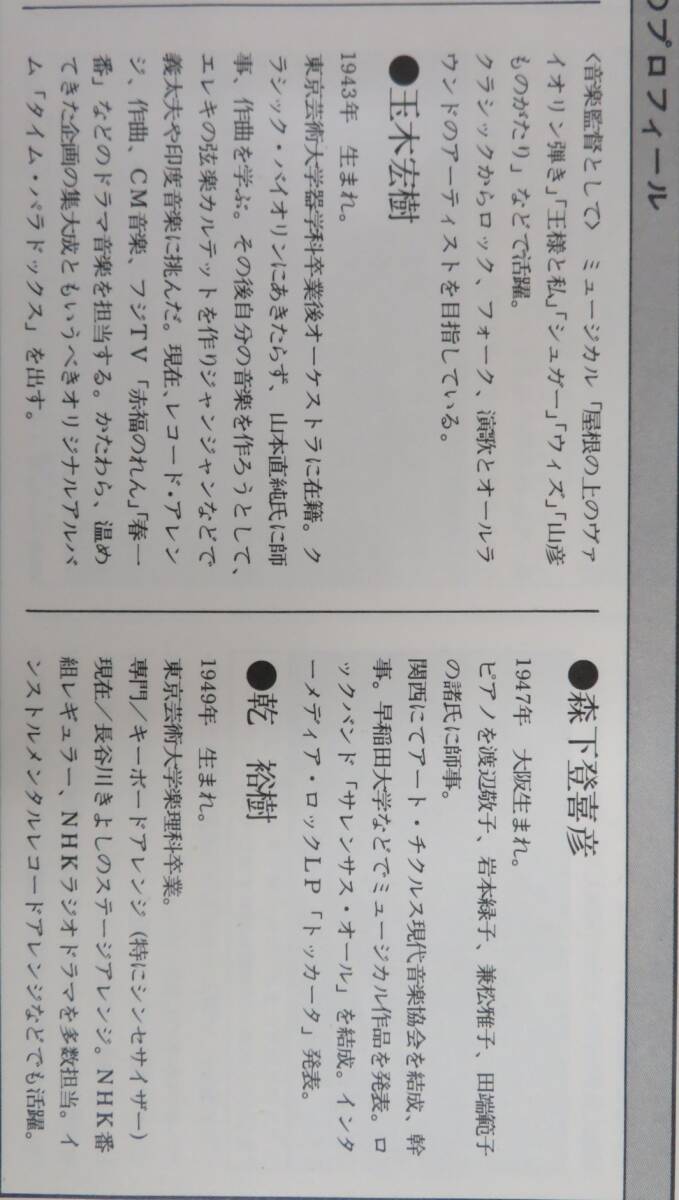 のプロフィール
〈音楽監督として〉 ミュージカル「屋根の上のヴァ
イオリン弾き」「王様と私」「シュガー」「ウィズ」「山彦
ものがたり」などで活躍。
クラシックからロック、フォーク、演歌とオールラ
ウンドのアーティストを目指している。
●玉木宏樹
1943年 生まれ。
東京芸術大学器学科卒業後オーケストラに在籍。ク
ラシック・バイオリンにあきたらず、山本直純氏に師
事、作曲を学ぶ。その後自分の音楽を作ろうとして、
エレキの弦楽カルテットを作りジャンジャンなどで
義太夫や印度音楽に挑んだ。現在、レコード・アレン
ジ、作曲、CM音楽、フジTV「赤福のれん」「春一
番」などのドラマ音楽を担当する。かたわら、温め
てきた企画の集大成ともいうべきオリジナルアルバ
ム「タイム・パラドックス」を出す。
●森下登喜彦
1947年 大阪生まれ。
ピアノを渡辺敬子、岩本緑子、兼松雅子、田端範子
の諸氏に師事。
関西にてアート・チクルス現代音楽協会を結成、幹
事。早稲田大学などでミュージカル作品を発表。ロ
ックバンド「サレンサス・オール」を結成。インタ
ーメディア・ロックLP「トッカータ」発表。
●乾 裕樹
1949年 生まれ。
東京芸術大学楽理科卒業。
専門/キーボードアレンジ(特にシンセサイザー)
現在/長谷川きよしのステージアレンジ。NHK番
組レギュラー、NHKラジオドラマを多数担当。イ
ンストルメンタルレコードアレンジなどでも活躍。